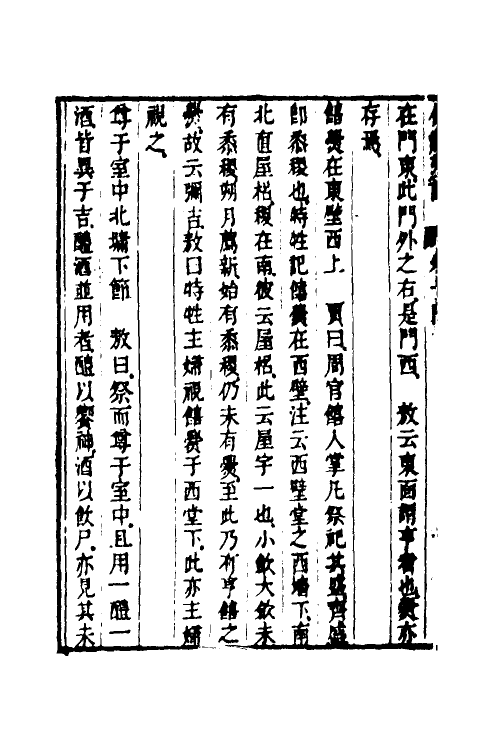 在門東此門外之右是門西　敖云東面謂亨者也爨亦
存焉
饎爨在東壁西上　賈曰周官饎人掌凡祭祀共盛齊盛
即黍稷也特牲記饎爨在西壁注云西壁堂之西墻下南
北直屋梠稷在南彼云屋梠此云屋宇一也小斂大斂未
有黍稷朔月薦新始有黍稷仍未有爨至此乃有亨饎之
爨故云彌吉敖曰特牲主婦視饎爨于西堂下此亦主婦
視之
尊于室中北墉下節　敖曰祭而尊于室中且用一醴一
酒皆異于吉醴酒並用者醴以饗神酒以飲尸亦見其未